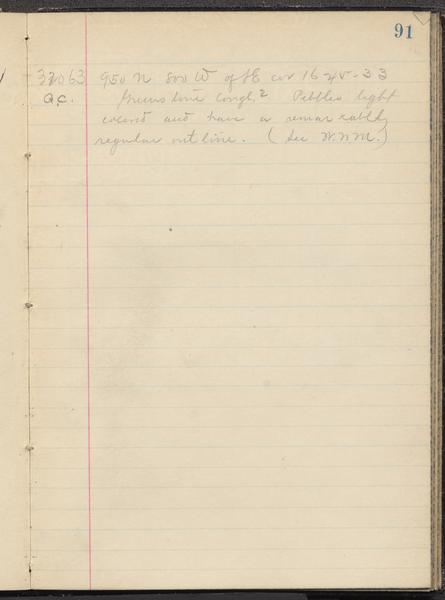 91
33063 950 N 800 W of SE cor 16-45-33
a.c. Greenstone congl. ? Pebbles light
colored and have a remarkably
regular outline. (See W.N.M.)